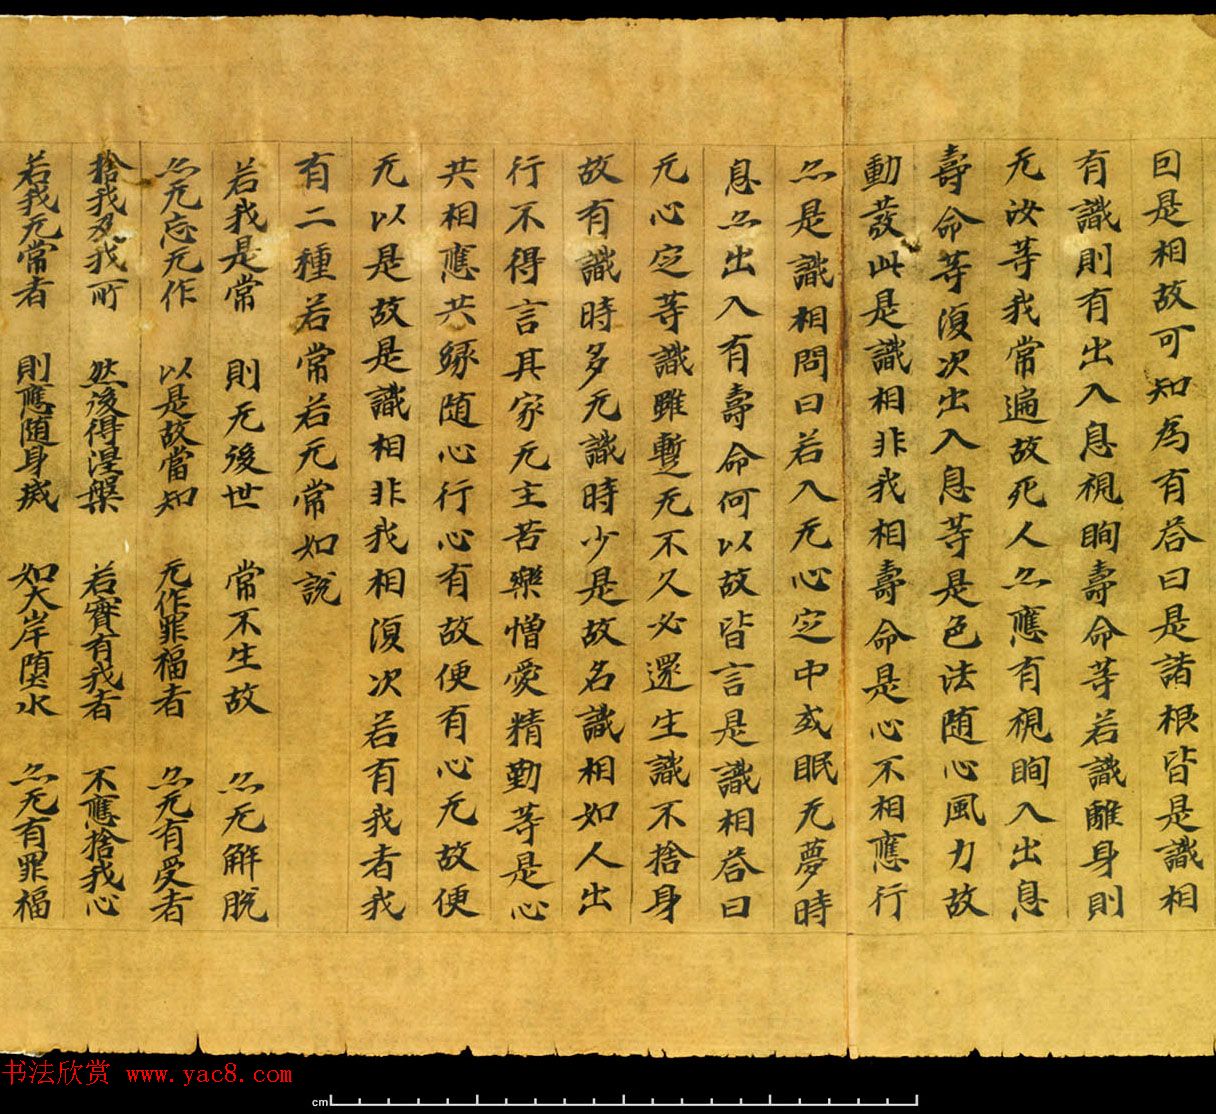 因是相故可知為有荅曰是諸根皆是識相
有識則有出入息視眴壽命等若識離身則
无汝等我常遍故死人亦應有視眴入出息
壽命等復次出入息等是色法随心風力故
動發此是識相非我相壽命是心不相應行
亦是識相問曰若入无心定中或眠无夢時
息亦出入有壽命何以故皆言是識相荅曰
无心定等識雖暫无不久必還生識不捨身
故有識時多无識時少是故名識相如人出
行不得言其家无主苦樂憎愛精勤等是心
共相應共緣随心行心有故便有心无故便
无以是故是識相非我相復次若有我者我
有二種若常若无常如說
若我是常 則无後世 常不生故 亦无解脫
亦无忘无作 以是故當知 无作罪福者 亦无有受者
捨我及我所 然後得涅槃 若實有我者 不應捨我心
若我无常者 則應随身滅 如大岸堕水 亦无有罪福
书法欣赏 www.yac8.com
cm